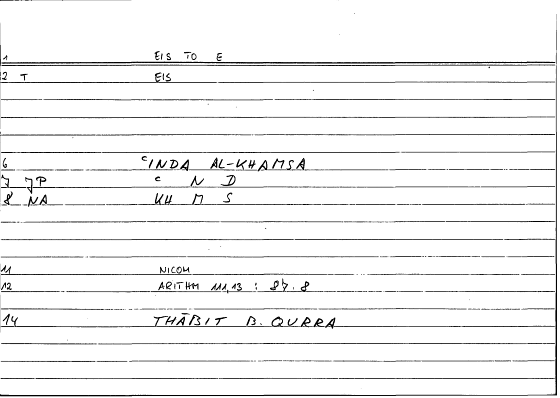 1 EIS TO E
2 T EIS
6 ʿINDA AL-KHAMSA
7 JP ʿ N D
8 NA KH M S
11 NICOM
12 ARITHM 111,13 : 87.8
14 THĀBIT B. QURRA